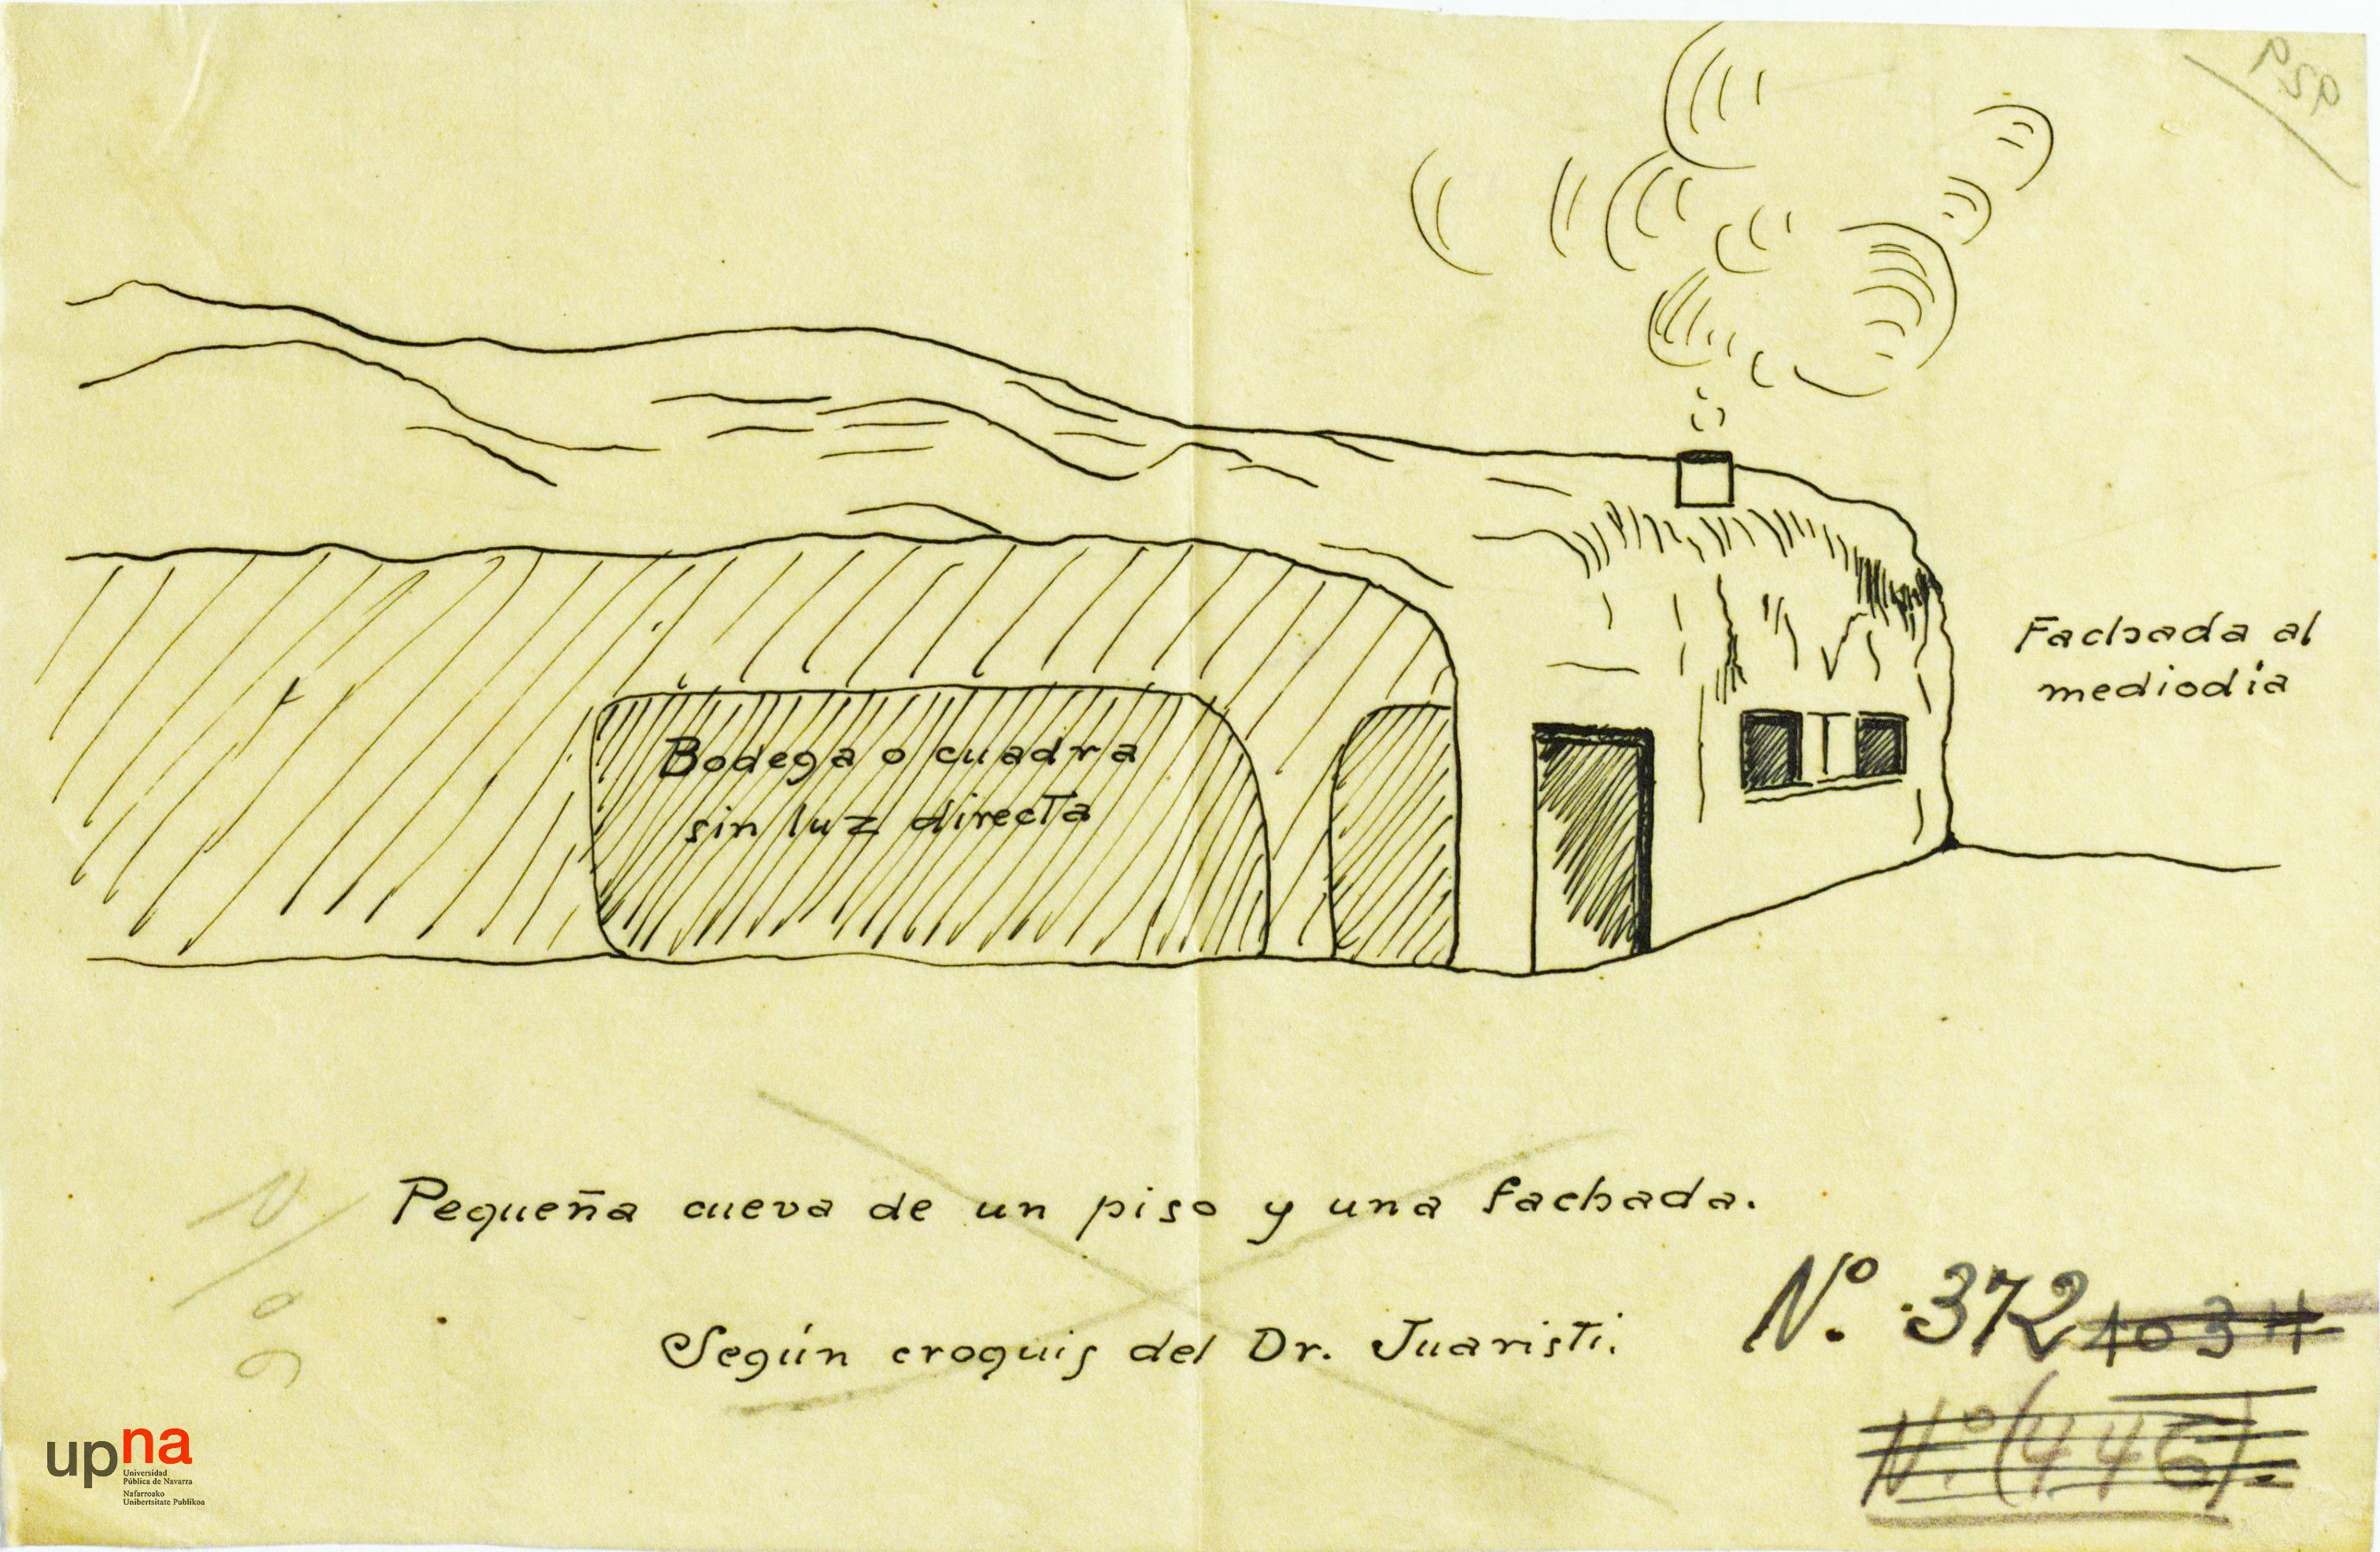 Fachada al
mediodia
Bodega o cuadra
sin luz directa
Pequeña cueva de un piso y una fachada.
Según croquis del Dr. Juaristi.
Nº. 372 4034
Nº. (446)
upna
Universidad
Pública de Navarra
Nafarroako
Unibertsitate Publikoa